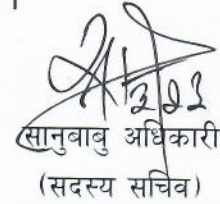 सानुबाबु अधिकारी
(सदस्य सचिव)